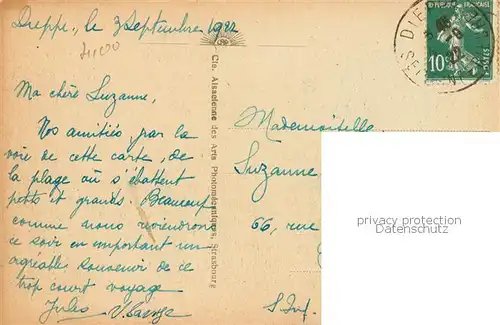 Dieppe, le 3 Septembre, 1922
Ma chère Suzanne,
Nos amitiés, par la
voie de cette carte, de
la plage où s'ébattent
petits et grands. Beaucoup
comme nous reviendrons
ce soir en emportant un
agréable souvenir de ce
trop court voyage
Jules
Cie. Alsacienne des Arts Photomécaniques, Strasbourg
Mademoiselle
Suzanne
66, rue
S. Inf.
REPUBLIQUE FRANÇAISE
10c
POSTES
privacy protection
Datenschutz